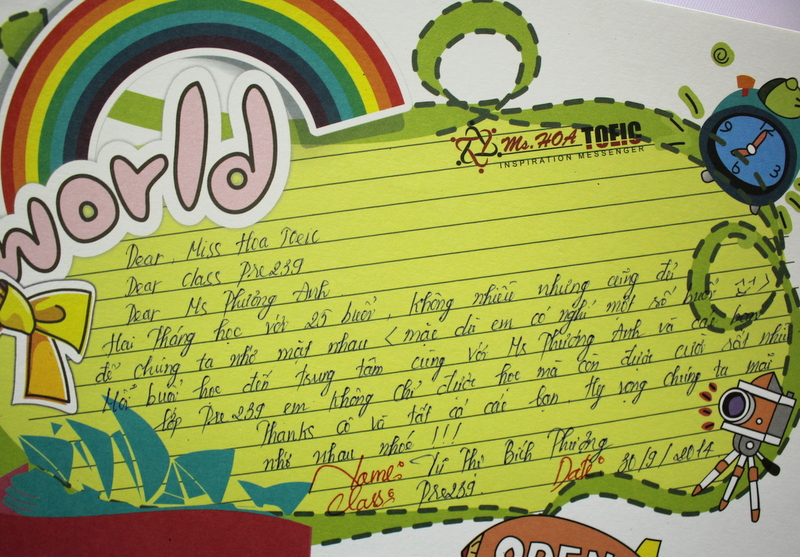 world
Ms. HOA TOEIC
INSPIRATION MESSENGER
Dear, Miss Hoa Toeic
Dear Class Pre239
Dear Ms Phương Anh
Hai Tháng học với 25 buổi, không nhiều nhưng cũng đủ
để chúng ta nhớ mặt nhau < mặc dù em có nghỉ một số buổi ^^>
Mỗi buổi học đến trung tâm cùng với Ms Phương Anh và các bạn
lớp Pre239 em không chỉ được học mà còn được cười rất nhiều
Thanks cô và tất cả các bạn. Hy vọng chúng ta mãi
nhớ nhau nhóe !!!
Name: Từ Thị Bích Phượng Date: 30/9/2014
Class: Pre239.
OPEN
6
9
3